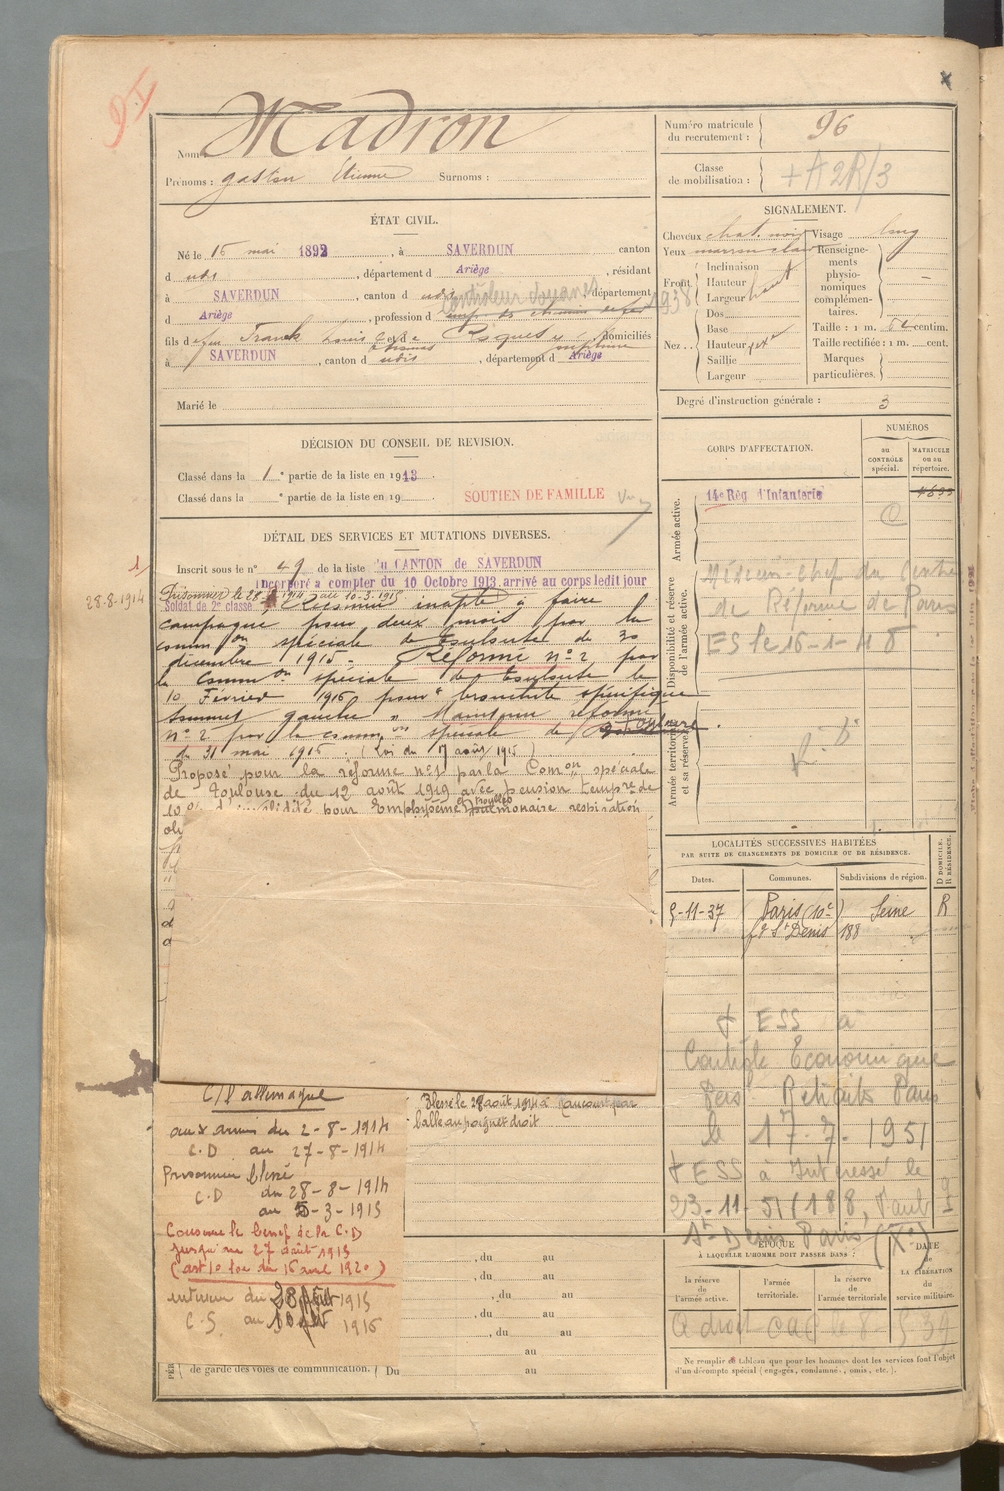 Nom Madron
Prénoms : gaston Etienne Surnoms :
Numéro matricule du recrutement : 96
Classe de mobilisation : + A 2R/3
ÉTAT CIVIL.
Né le 15 mai 1892, à SAVERDUN canton
d udit, département d Ariège, résidant
à SAVERDUN, canton d udit, département
d Ariège, profession d Contrôleur douanes 1938
emp. de chemin de fer
fils de feu Franck Louis et de domiciliés
à SAVERDUN, canton d udit, département d Ariège
Marié le
SIGNALEMENT.
Cheveux chat. noir Visage long
Yeux marron clair
Front Inclinaison
Hauteur haut
Largeur
Nez Dos
Base
Hauteur
Saillie
Largeur
Renseignements physionomiques complémentaires.
Taille : 1 m. 52 centim.
Taille rectifiée : 1 m. cent.
Marques particulières.
Degré d'instruction générale : 3
DÉCISION DU CONSEIL DE REVISION.
Classé dans la 1e partie de la liste en 1913.
Classé dans la e partie de la liste en 19
SOUTIEN DE FAMILLE
CORPS D'AFFECTATION.
NUMÉROS
au CONTRÔLE spécial.
MATRICULE ou au répertoire.
Armée active.
14e Rég d'Infanterie
Disponibilité et réserve de l'armée active.
Médecin-chef du Centre
de Réforme de Paris
ES le 16-1-48
Armée territoriale et sa réserve.
DÉTAIL DES SERVICES ET MUTATIONS DIVERSES.
Inscrit sous le n° 49 de la liste du CANTON de SAVERDUN
Incorporé à compter du 10 Octobre 1913, arrivé au corps ledit jour
28-8-1914
Prisonnier le 28-8-1914 au 10-3-1915
Soldat de 2e classe, Reconnu inapte à faire
campagne pour deux mois par la
common spéciale de Toulouse du 30
décembre 1915. Réformé n° 2 par
la Common spéciale de Toulouse le
10 Février 1916 pour " bronchite spécifique
sommet gauche " Maintenu réformé
n° 2 par la commion spéciale de
du 31 mai 1916. (Loi du 17 août 1915)
Proposé pour la réforme n° 1 par la Comon spéciale
de Toulouse du 12 août 1919 avec pension tempre de
10 % d'invalidité pour Emphysème pulmonaire respiration
LOCALITÉS SUCCESSIVES HABITÉES
PAR SUITE DE CHANGEMENTS DE DOMICILE OU DE RÉSIDENCE.
Dates. Communes. Subdivisions de région. D DOMICILE. R RÉSIDENCE.
5-11-37 Paris (10e) Seine R
fg St Denis 188
+ ESS à
Contrôle Economique
Pers Retraités Paris
le 17-7-1951
+ ESS à Intéressé le
23-11-51 (188, Faub
St Denis Paris (Xe)
C/ l'allemagne
aux armées du 2-8-1914
C.D au 27-8-1914
Prisonnier blessé
C.D du 28-8-1914
au 5-3-1915
Conserve le bénéf de la C.D
jusqu'au 27 août 1915
(art 10 loi du 16 avril 1920)
intérieur du 28 Août 1915
C.S. au 10 1916
Blessé le 28 août 1914 à Raucourt par
balle au poignet droit
, du au
, du au
, du au
, du au
, du au
au
de garde des voies de communication. Du au
ÉPOQUE
À LAQUELLE L'HOMME DOIT PASSER DANS :
la réserve de l'armée active.
l'armée territoriale.
la réserve de l'armée territoriale
DATE de LA LIBÉRATION du service militaire.
Ne remplir ce tableau que pour les hommes dont les services font l'objet
d'un décompte spécial (engagés, condamnés, omis, etc.).